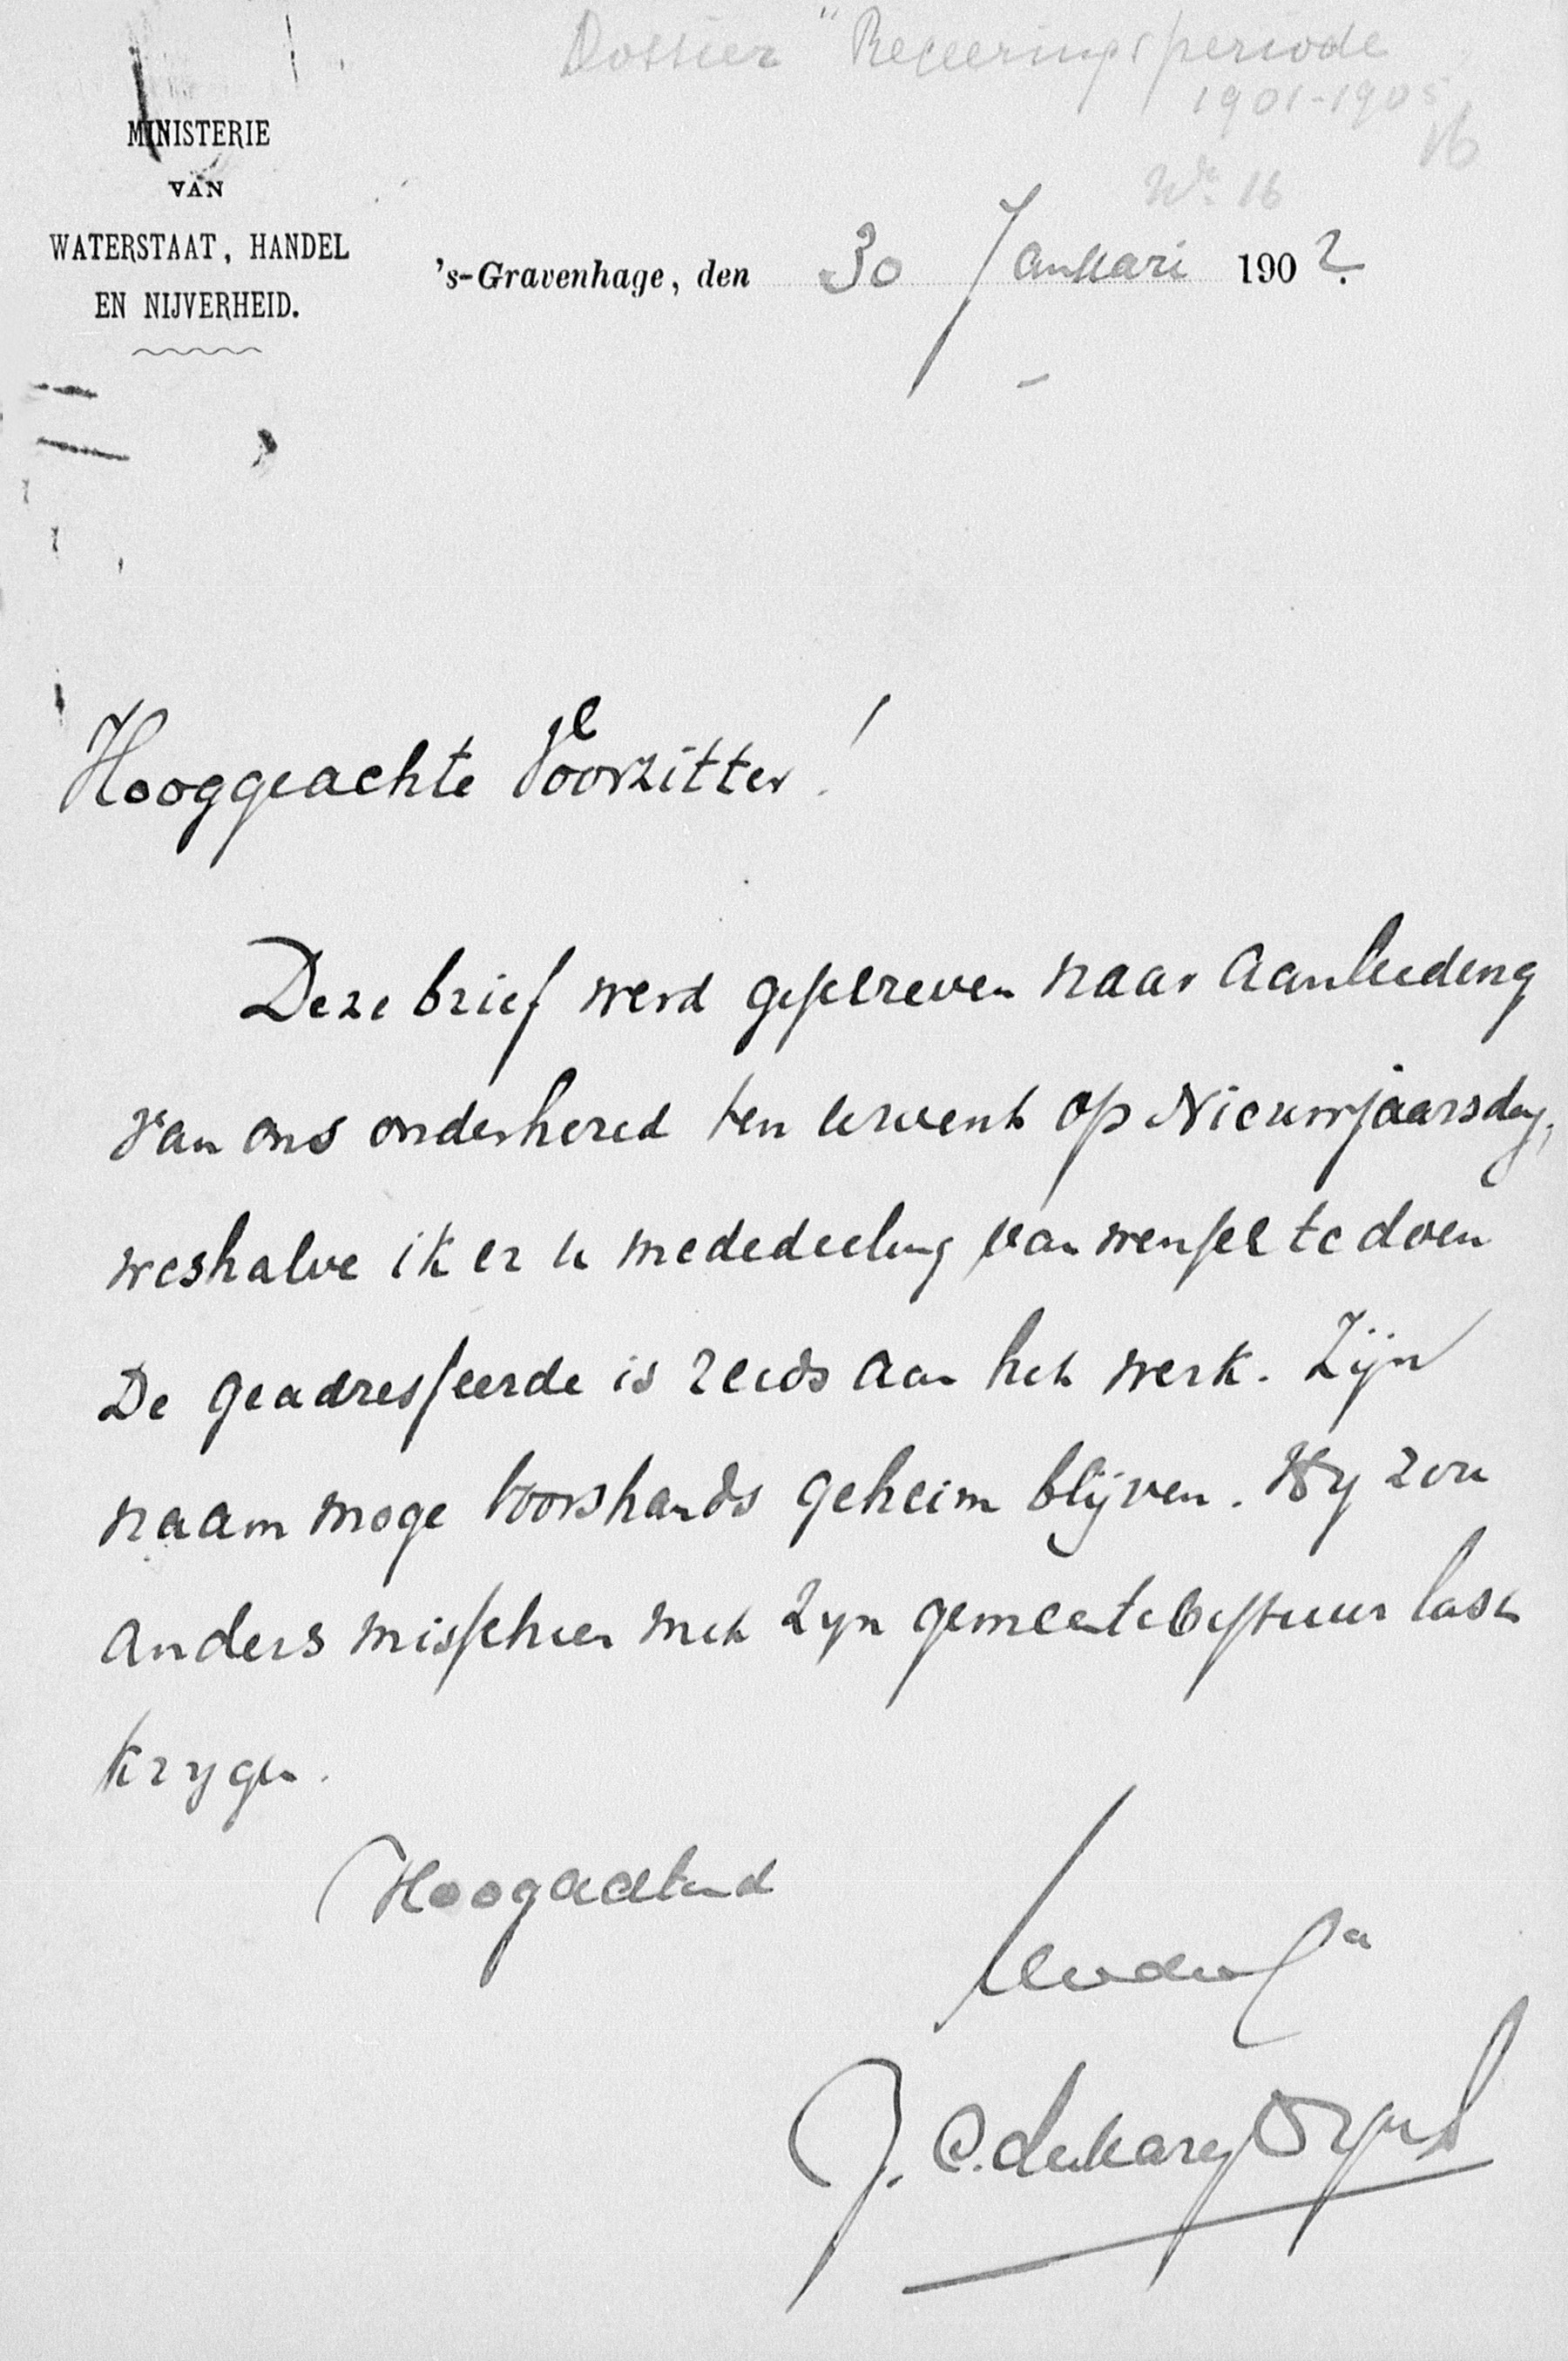 Dossier "Regeeringsperiode
1901-1905
16
No. 16
MINISTERIE
VAN
WATERSTAAT, HANDEL
EN NIJVERHEID.
's-Gravenhage, den 30 Januari 1902
Hooggeachte Voorzitter!
Deze brief werd geschreven naar aanleiding
van ons onderhoud ten uwent op Nieuwjaarsdag,
weshalve ik er u mededeeling van wensch te doen
De geadresseerde is reeds aan het werk. Zijn
naam moge voorshands geheim blijven. Hy zou
anders misschien met zyn gemeentebestuur last
krygen.
Hoogachtend
J. C. de Marez Oyens